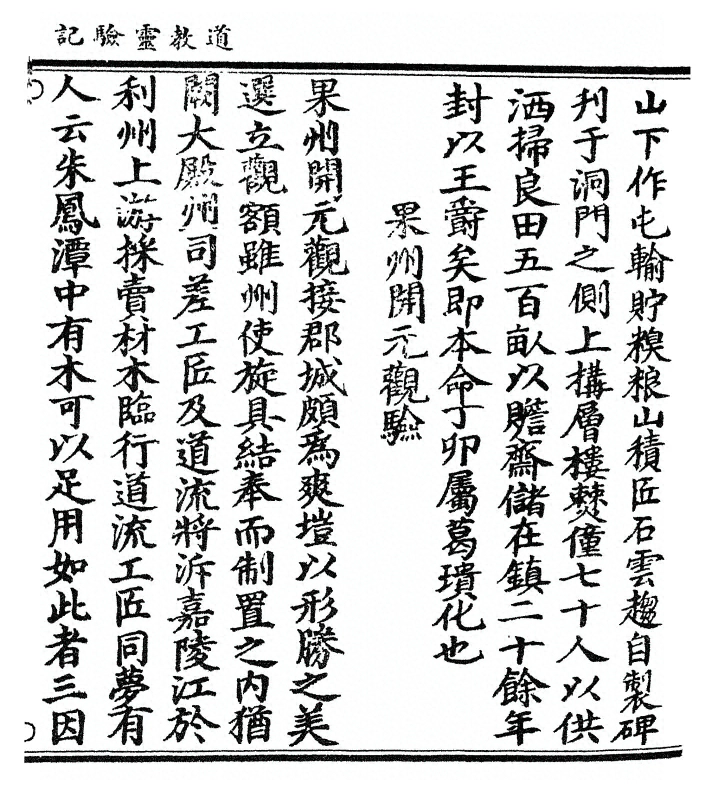 道教靈驗記
山下作屯輸貯糗粮山積匠石雲趨自製碑
刋于洞門之側上搆層樓㷊僮七十人以供
洒掃良田五百畝以贍齋儲在鎮二十餘年
封以王爵矣即本命丁卯屬葛璝化也
果州開元觀驗
果州開元觀接郡城頗爲爽塏以形勝之美
選立觀額雖州使旋具結奉而制置之內猶
闕大殿州司差工匠及道流將泝嘉陵江於
利州上游採賣材木臨行道流工匠同夢有
人云朱鳳潭中有木可以足用如此者三因